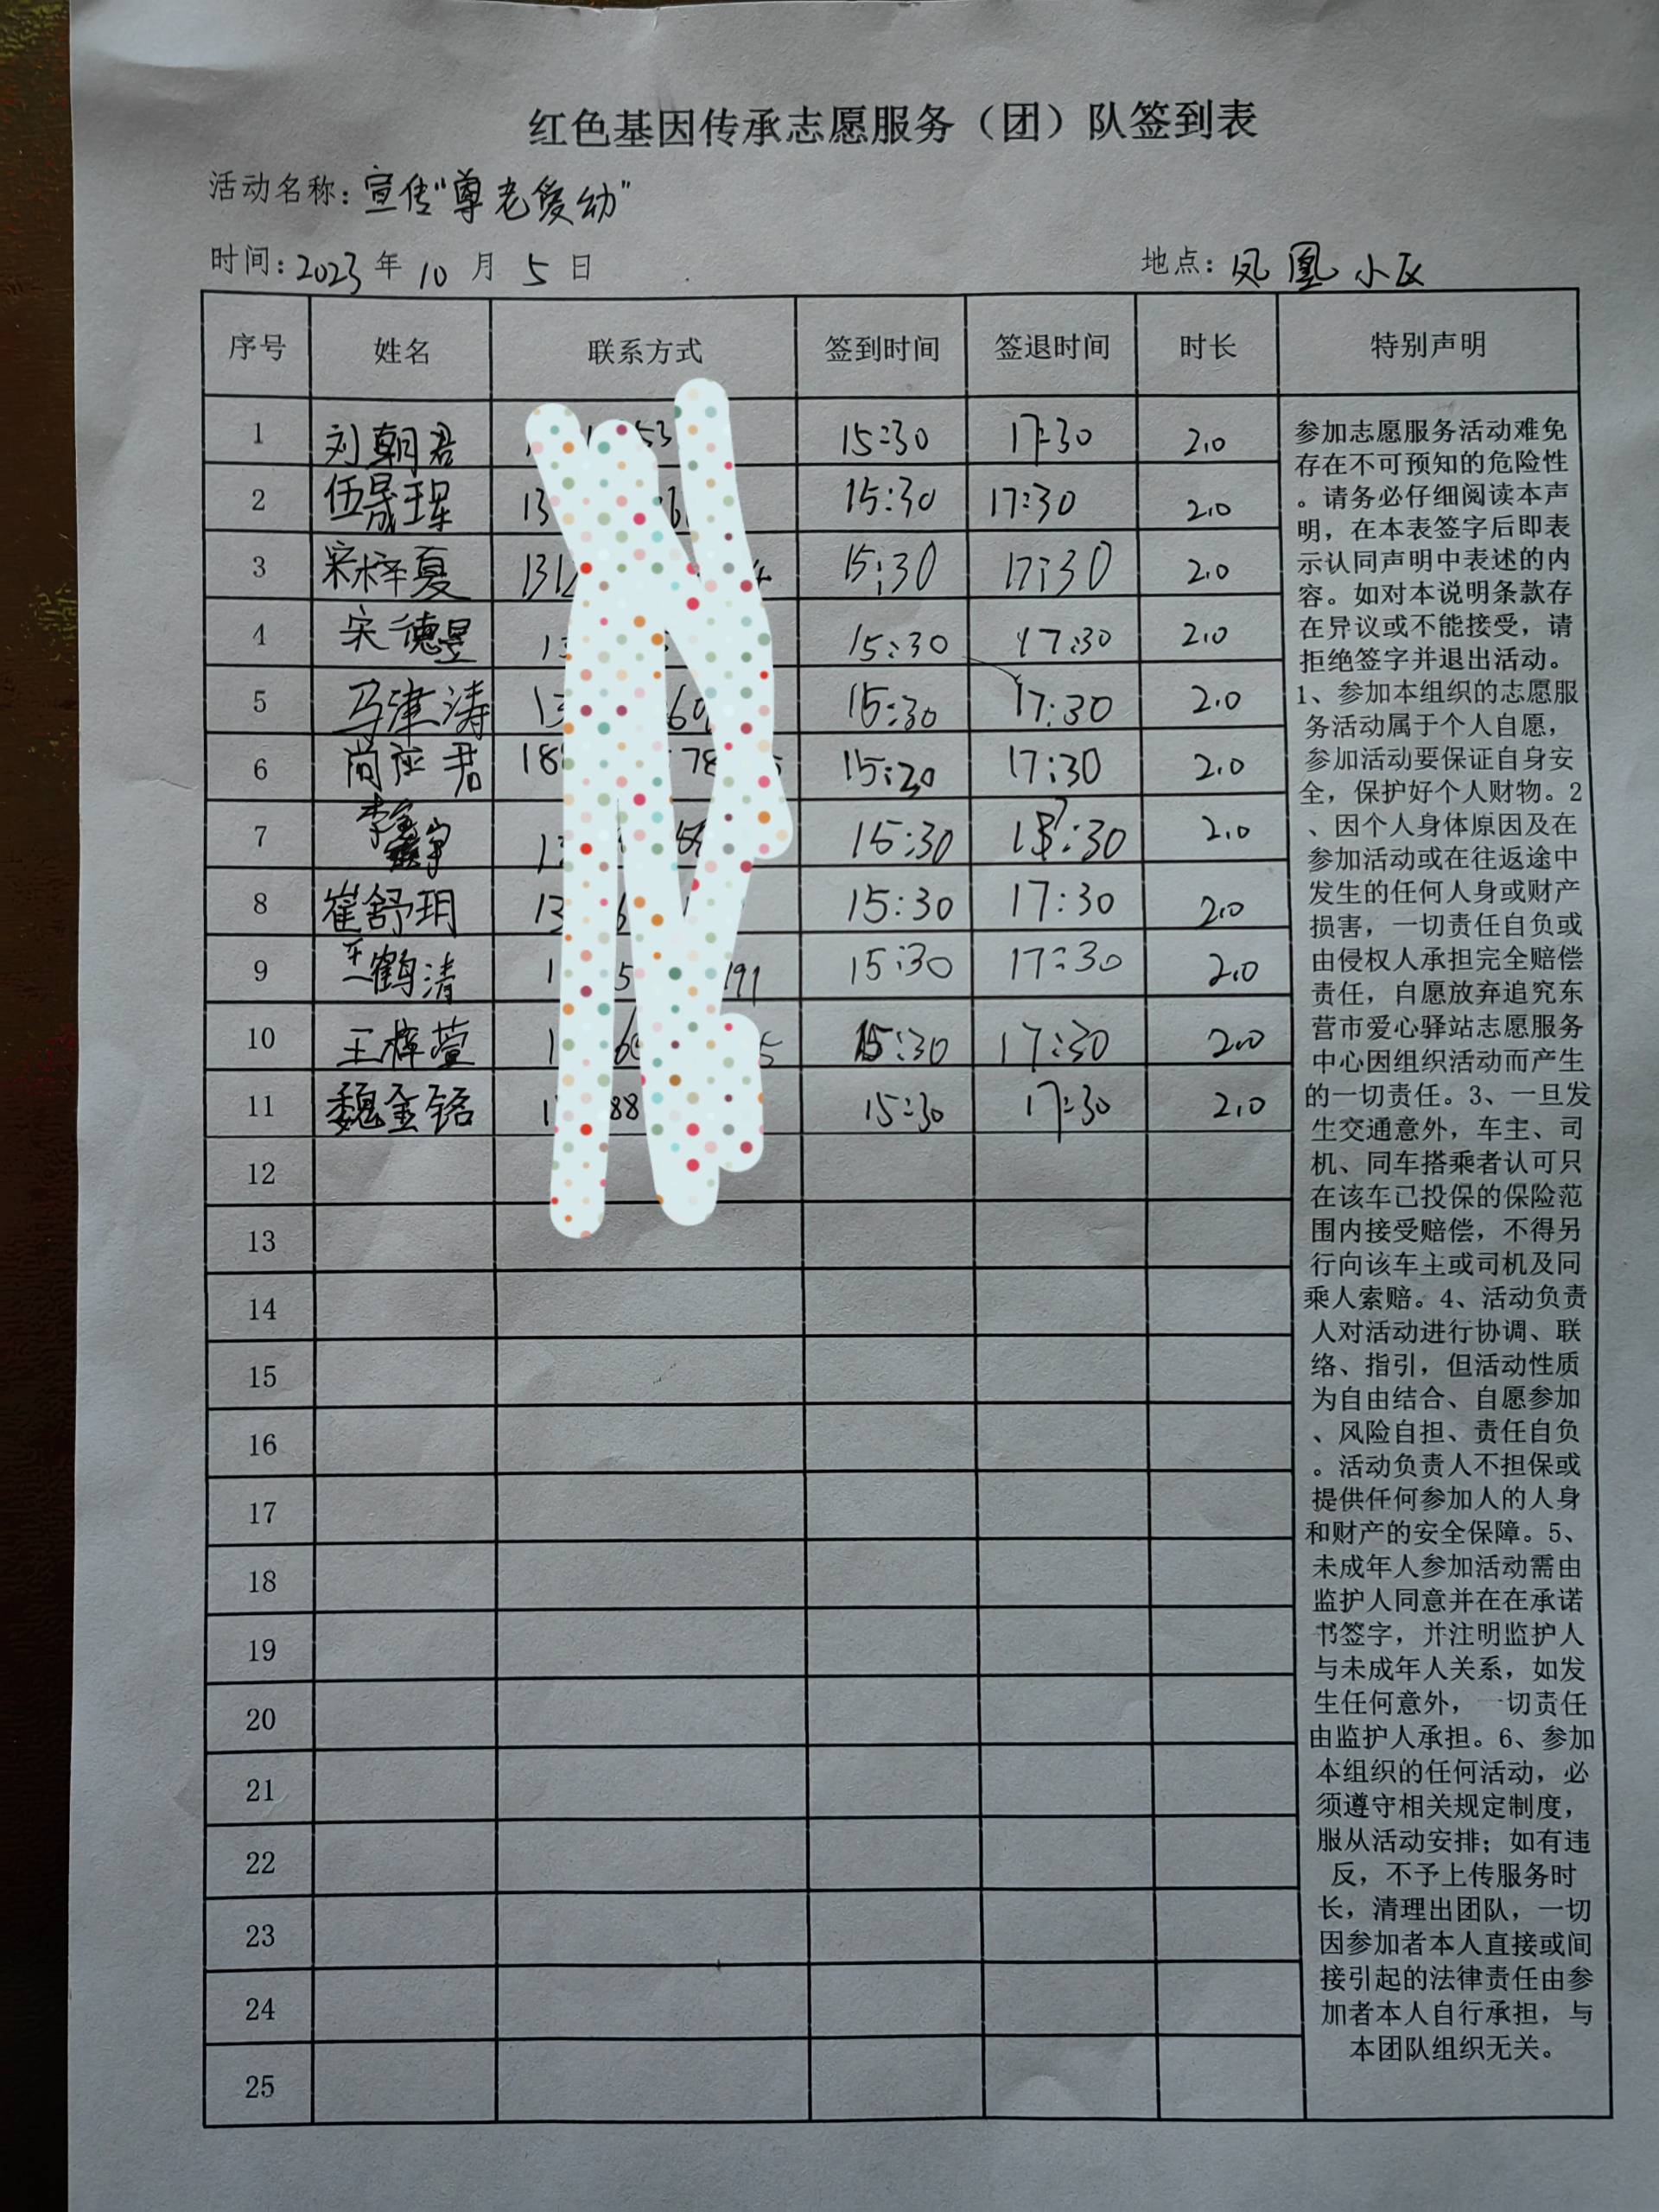 红色基因传承志愿服务（团）队签到表
活动名称：宣传“尊老爱幼”
时间：2023年10月5日 地点：凤凰小区
序号 姓名 联系方式 签到时间 签退时间 时长 特别声明
1 刘朝君 53 15:30 17:30 2.0
2 伍晟珲 13 15:30 17:30 2.0
3 宋梓夏 131 15:30 17:30 2.0
4 宋德昱 13 15:30 17:30 2.0
5 马津涛 13 60 15:30 17:30 2.0
6 尚 君 18 78 15:30 17:30 2.0
7 李 宇 15:30 :30 2.0
8 崔舒玥 13 15:30 17:30 2.0
9 王鹤清 1 5 191 15:30 17:30 2.0
10 王梓萱 1 6 5 15:30 17:30 2.0
11 魏金铭 1 88 15:30 17:30 2.0
12
13
14
15
16
17
18
19
20
21
22
23
24
25
参加志愿服务活动难免
存在不可预知的危险性
。请务必仔细阅读本声
明，在本表签字后即表
示认同声明中表述的内
容。如对本说明条款存
在异议或不能接受，请
拒绝签字并退出活动。
1、参加本组织的志愿服
务活动属于个人自愿，
参加活动要保证自身安
全，保护好个人财物。2
、因个人身体原因及在
参加活动或在往返途中
发生的任何人身或财产
损害，一切责任自负或
由侵权人承担完全赔偿
责任，自愿放弃追究东
营市爱心驿站志愿服务
中心因组织活动而产生
的一切责任。3、一旦发
生交通意外，车主、司
机、同车搭乘者认可只
在该车已投保的保险范
围内接受赔偿，不得另
行向该车主或司机及同
乘人索赔。4、活动负责
人对活动进行协调、联
络、指引，但活动性质
为自由结合、自愿参加
、风险自担、责任自负
。活动负责人不担保或
提供任何参加人的人身
和财产的安全保障。5、
未成年人参加活动需由
监护人同意并在在承诺
书签字，并注明监护人
与未成年人关系，如发
生任何意外，一切责任
由监护人承担。6、参加
本组织的任何活动，必
须遵守相关规定制度，
服从活动安排；如有违
反，不予上传服务时
长，清理出团队，一切
因参加者本人直接或间
接引起的法律责任由参
加者本人自行承担，与
本团队组织无关。